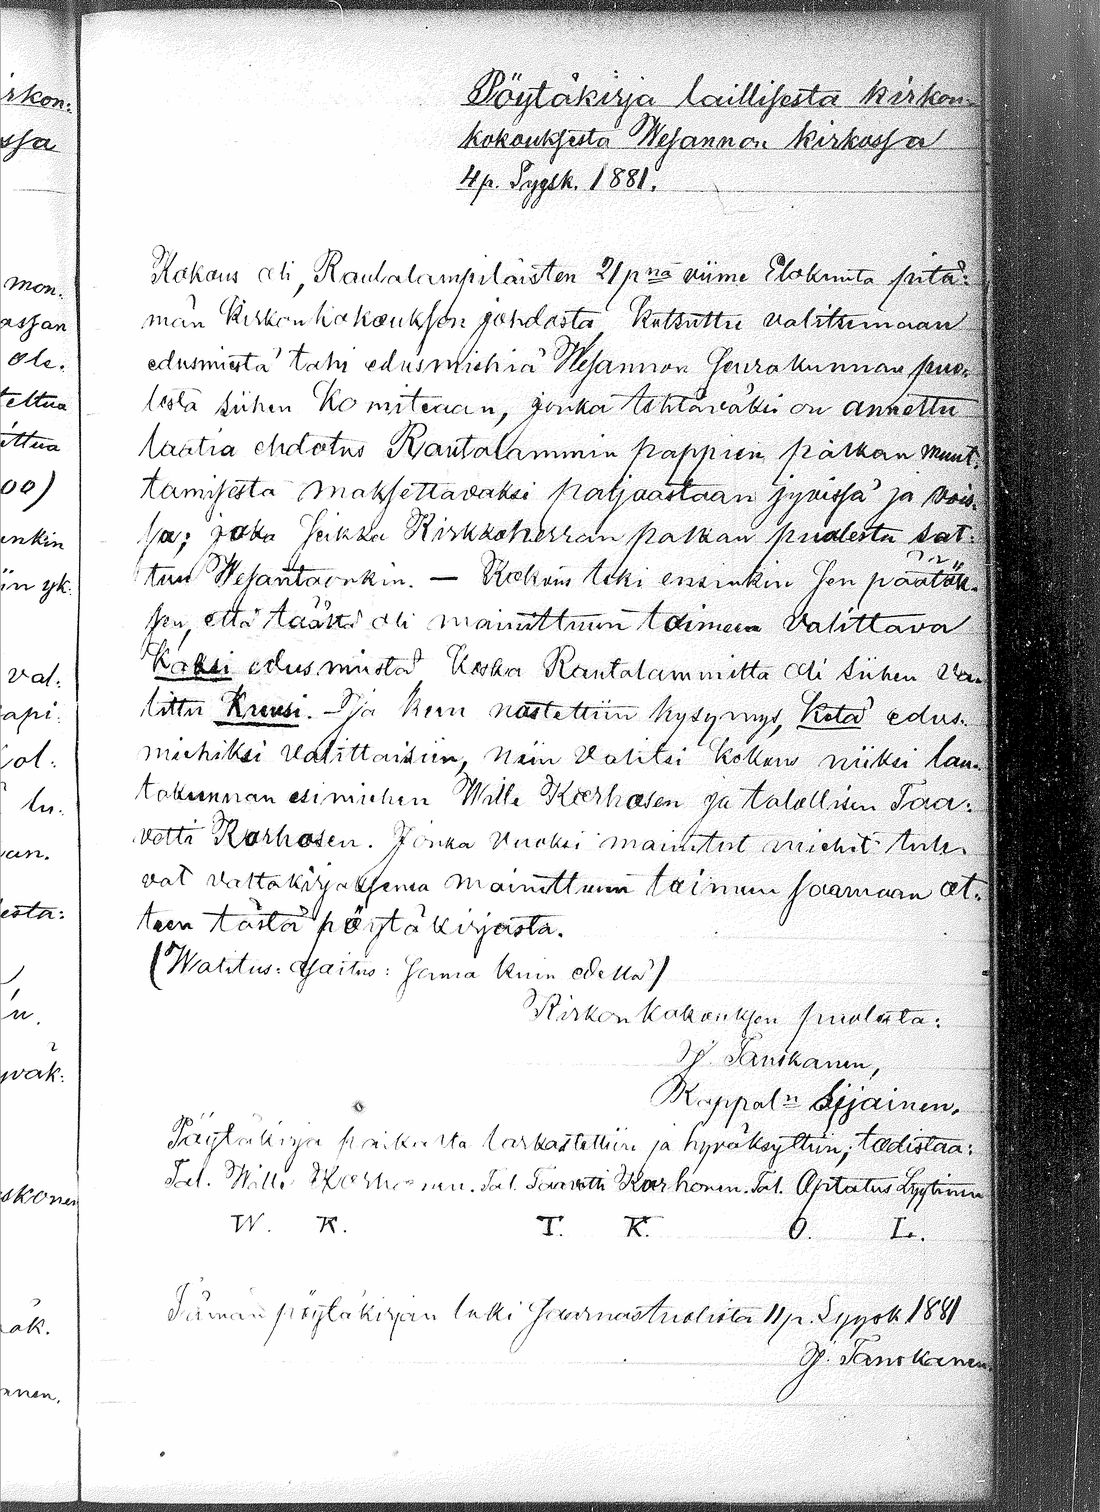 Pöytäkirja laillisesta kirkon-
kokouksesta Wesannon kirkossa
4p. Syysk. 1881.
Kokous oli, Rautalampiläisten 21pnä viime Elokuuta pitä-
män kirkonkokouksen johdosta, kutsuttu valitsemaan
edusmiestä tahi edusmiehiä Wesannon seurakunnan puo-
lesta siihen Komiteaan, jonka tehtäväksi on annettu
laatia ehdotus Rautalammin pappien palkan muut-
tamisesta maksettavaksi paljaastaan jyvissä ja vois-
sa; joka seikka Kirkkoherran palkan puolesta sat-
tuu Wesantoonkin. — Kokous teki ensinkin sen päätök-
sen, että täältä oli mainittuun toimeen valittava
Kaksi edusmiestä, koska Rautalammilta oli siihen va-
littu Kuusi. — Ja kuin nostettiin kysymys, Ketä edus-
miehiksi valittaisiin, niin valitsi kokous niiksi lau-
takunnan esimiehen Wille Korhosen ja talollisen Taa-
vetti Korhosen. Jonka vuoksi mainitut miehet tule-
vat valtakirjaksensa mainittuun toimeen saamaan ot-
teen tästä pöytäkirjasta.
(Walitus-osoitus: sama kuin edellä)
Kirkonkokouksen puolesta:
J. Tanskanen,
Kappal:n Sijainen.
Pöytäkirja paikalla tarkastettiin ja hyväksyttiin; todistaa:
Tal. Wille Korhonen. Tal. Taavetti Korhonen. Tal. Optatus Lyytinen
W. K. T. K. O. L.
Tämän pöytäkirjan luki Saarnastuolista 11p. Syysk 1881
J. Tanskanen.